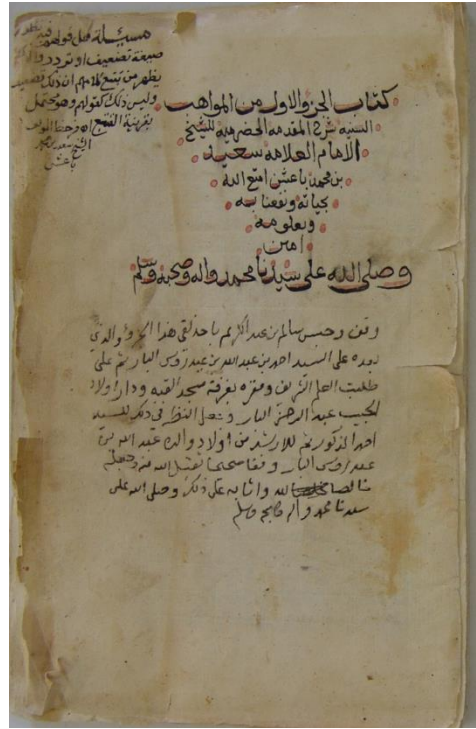 مسئلة هل قولهم فيه نظر
صيغة تضعيف او تردد والذي
يظهر من تتبع كلامهم ان ذلك تضعيف
وليس ذلك كقولهم وهو محتمل
بقرينة الفتح اه من خط المؤلف
الشيخ سعيد بن محمد
باعشن
كتاب الجزء الاول من المواهب
السنيه شرح المقدمه الحضرميه للشيخ
الامام العلامه سعيد
بن محمد باعشن امتع الله
بحياته ونفعنا به
وبعلومه
امين
وصلى الله على سيدنا محمد واله وصحبه وسلم
وقف وحبس سالم بن عبد الكريم باحذلق هذا الجزء والذي
بعده على السيد احمد بن عبد الله بن عيدروس البار ثم على
طلبت العلم الشريف ومقره بغرفة مسجد القبه ودار اولاد
الحبيب عبد الرحمن البار وجعل النظر في ذلك للسيد
احمد المذكور ثم للارشد من اولاد والده عبد الله بن
عيدروس البار وقفا صحيحا تقبل الله منه وجعله
خالصا لله واثابه على ذلك وصلى الله على
سيدنا محمد واله وصحبه وسلم